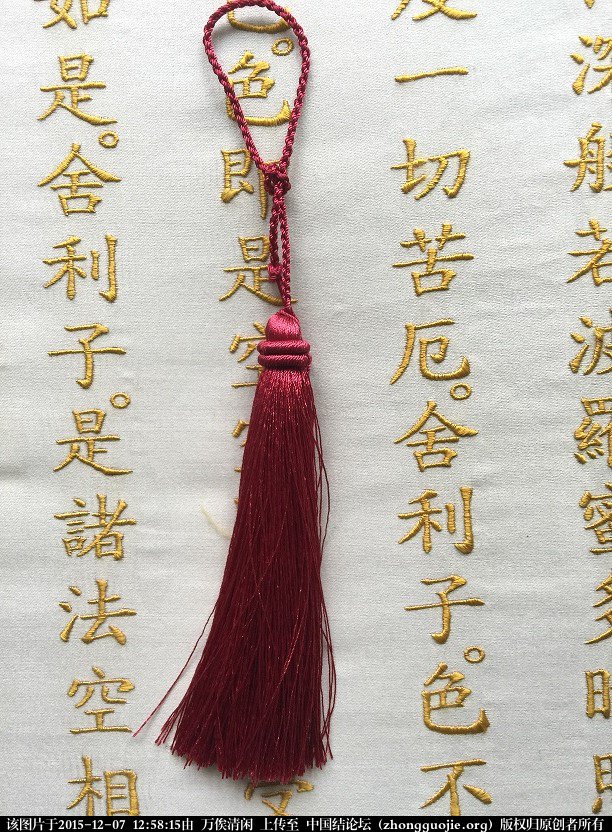 深般若波羅蜜多時照
度一切苦厄。舍利子。色不
。色即是空
如是。舍利子。是諸法空相
该图片于2015-12-07 12:58:15由 万俟清闲 上传至 中国结论坛 (zhongguojie.org) 版权归原创者所有